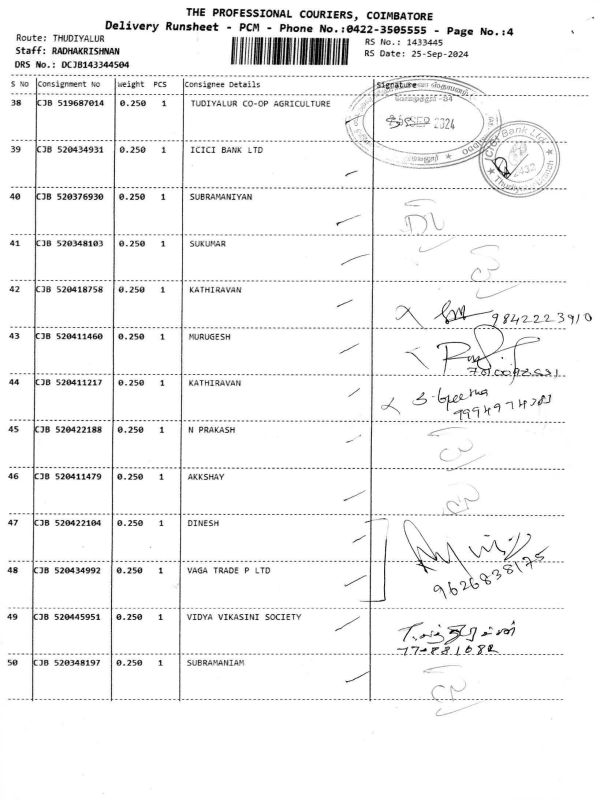 THE PROFESSIONAL COURIERS, COIMBATORE
Delivery Runsheet - PCM - Phone No.:0422-3505555 - Page No.:4
Route: THUDIYALUR
RS No.: 1433445
Staff: RADHAKRISHNAN
RS Date: 25-Sep-2024
DRS No.: DCJB143344504
S No Consignment No Weight PCS Consignee Details Signature
38 CJB 519687014 0.250 1 TUDIYALUR CO-OP AGRICULTURE
கோயமுத்தூர் - 84
SEP 2024
39 CJB 520434931 0.250 1 ICICI BANK LTD
ICICI Bank Ltd
40 CJB 520376930 0.250 1 SUBRAMANIYAN
41 CJB 520348103 0.250 1 SUKUMAR
42 CJB 520418758 0.250 1 KATHIRAVAN
9842223910
43 CJB 520411460 0.250 1 MURUGESH
44 CJB 520411217 0.250 1 KATHIRAVAN
S. Geetha
45 CJB 520422188 0.250 1 N PRAKASH
46 CJB 520411479 0.250 1 AKKSHAY
47 CJB 520422104 0.250 1 DINESH
9626838175
48 CJB 520434992 0.250 1 VAGA TRADE P LTD
49 CJB 520445951 0.250 1 VIDYA VIKASINI SOCIETY
50 CJB 520348197 0.250 1 SUBRAMANIAM